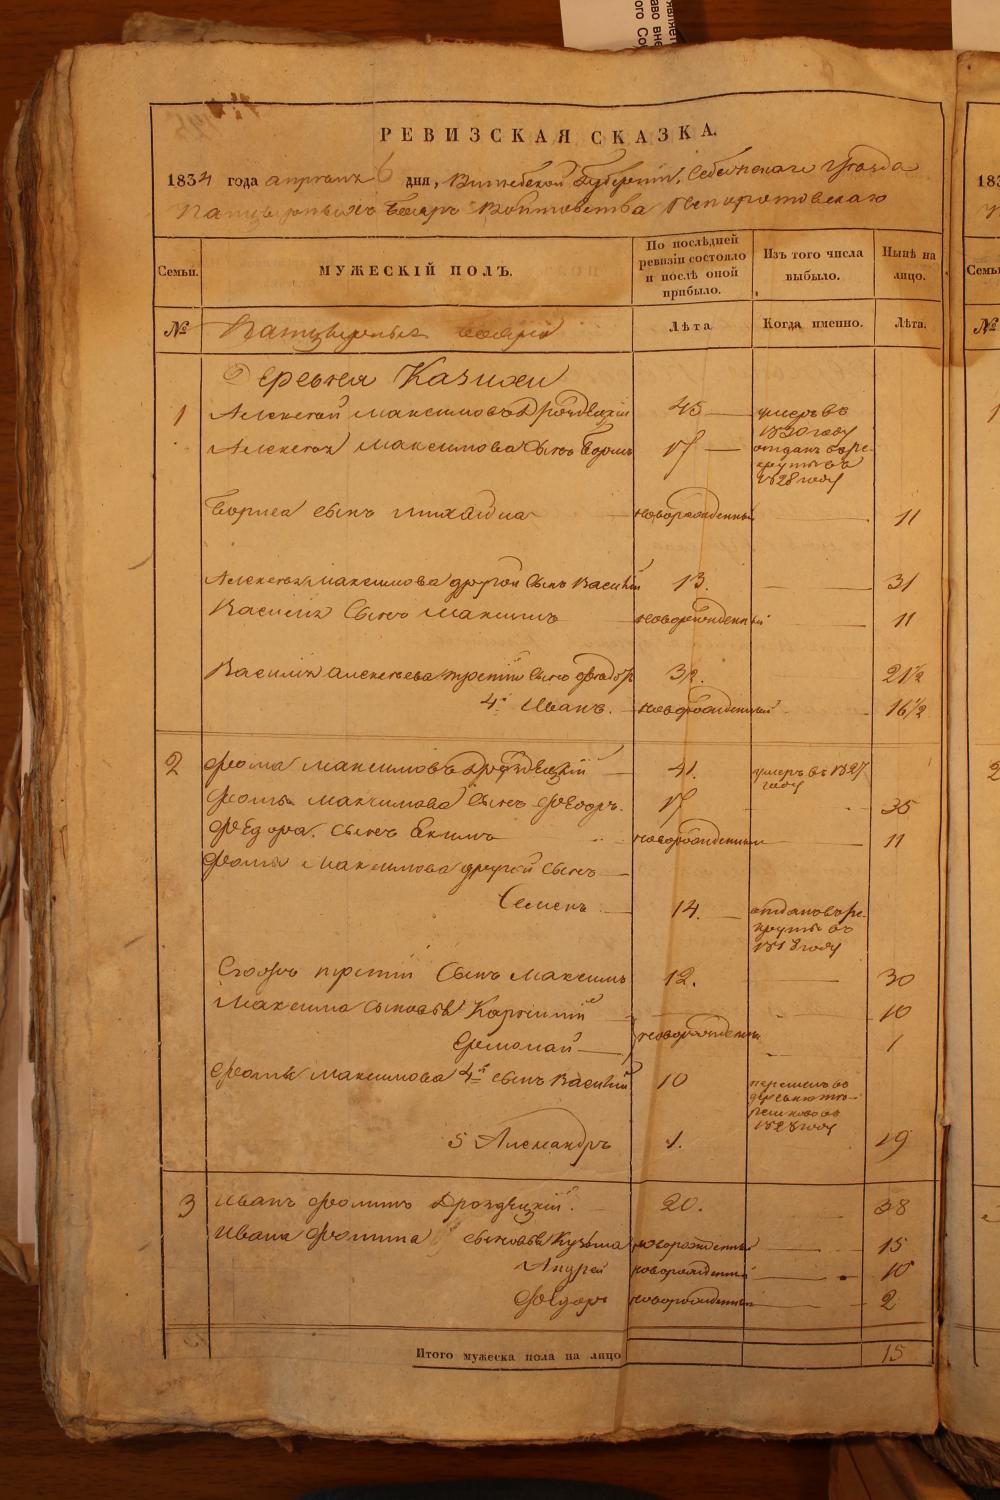 РЕВИЗСКАЯ СКАЗКА.
1834 года апреля 6 дня, Витебской Губернии, Себежскаго Уезда
Панцырныхъ Бояръ Войтовства Непоротовскаго
Семьи.
МУЖЕСКІЙ ПОЛЪ.
По послѣдней ревизіи состояло и послѣ оной прибыло.
Изъ того числа выбыло.
Нынѣ на лицо.
№
Панцырныхъ бояръ
Лѣта
Когда именно.
Лѣта.
Деревня Казихи
1 Алексей Максимовъ Дроздецкій 45 умеръ въ 1830 году
Алексея Максимова Сынъ Борисъ 17 отданъ въ рекруты въ 1828 году
Бориса сынъ Михайла новорожденный 11
Алексея Максимова другой Сынъ Василій 13. 31
Василія Сынъ Максимъ новорожденный 11
Василія Алексеева третій Сынъ 3½. 21½
4й Иванъ. новорожденный 16½
2 Фома Максимовъ Дроздецкій 41. умеръ въ 1827 году
Фомы Максимова Сынъ Федоръ. 17 35
Федора Сынъ Екимъ новорожденный 11
Фомы Максимова другой Сынъ
Семенъ 14. отданъ въ рекруты въ 1818 году
Егожъ третій Сынъ Максимъ 12. 30
Максима Сыновья 10
Ермолай новорожденны 1
Фомы Максимова 4й сынъ Василій 10 перешелъ въ деревню въ 1828 году
5 Александръ 1. 19
3 Иванъ Фоминъ Дроздецкій. 20. 38
Ивана Фомина сыновья Кузьма новорожденный 15
Андрей новорожденный 10
Федоръ новорожденный 2
Итого мужеска пола на лицо 15